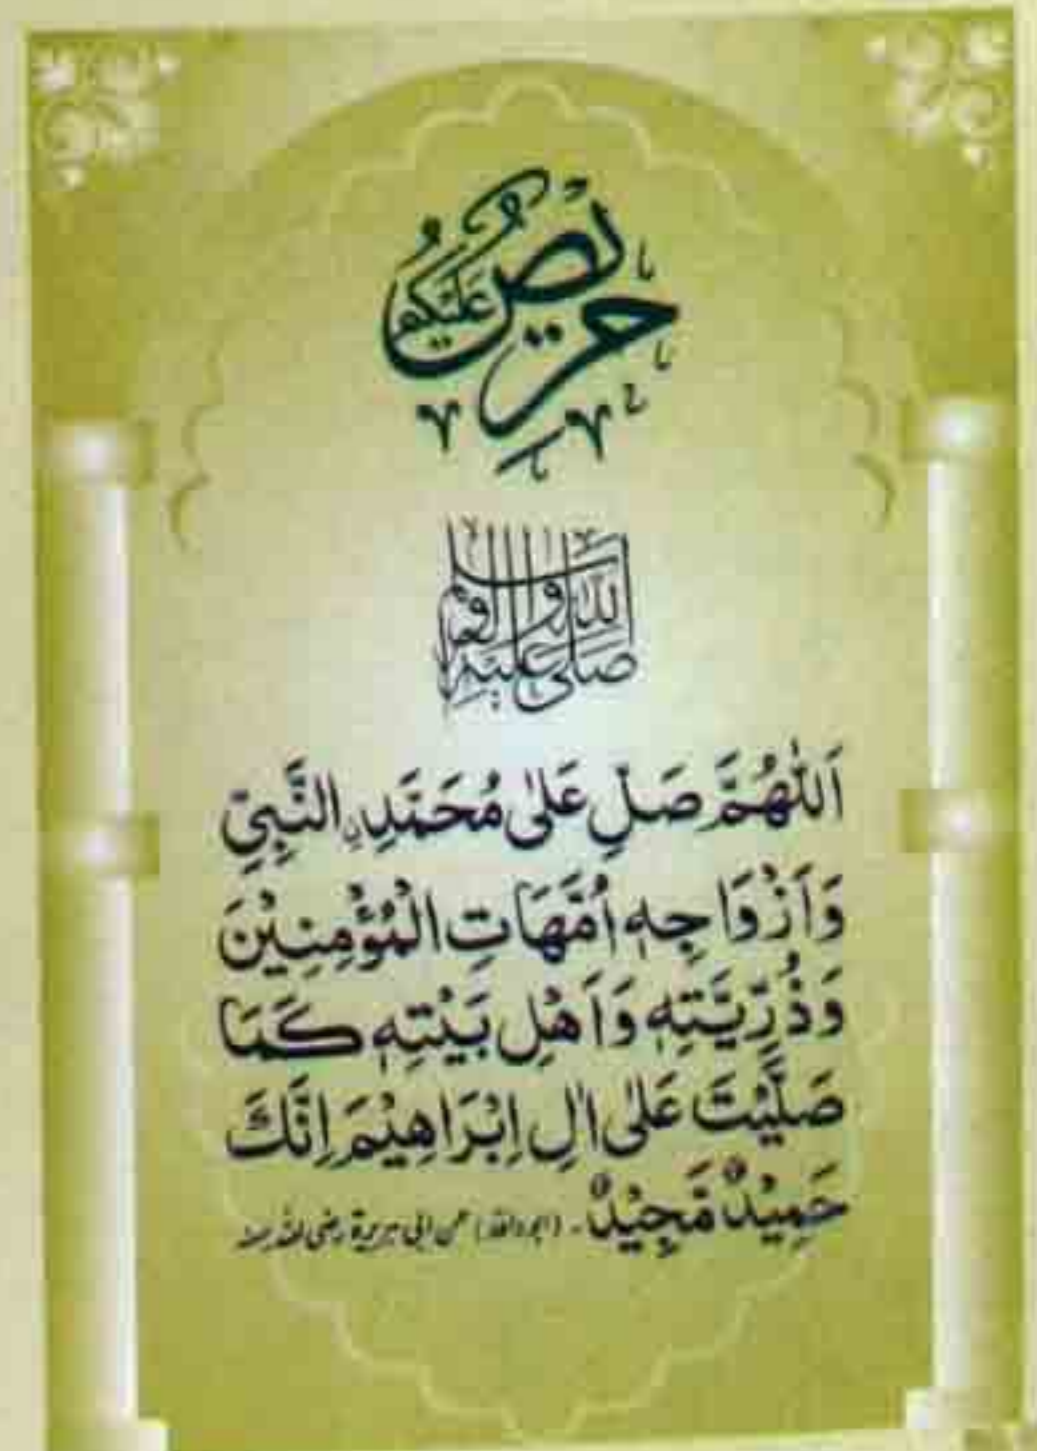 حَرِيْصٌ عَلَيْكُمْ
صَلَّى اللهُ عَلَيْهِ وَآلِهِ وَسَلَّم
اَللّٰهُمَّ صَلِّ عَلٰى مُحَمَّدِ ِالنَّبِيِّ
وَاَزْوَاجِهٖ اُمَّهَاتِ الْمُؤْمِنِيْنَ
وَذُرِّيَّتِهٖ وَاَهْلِ بَيْتِهٖ كَمَا
صَلَّيْتَ عَلٰى اٰلِ اِبْرَاهِيْمَ اِنَّكَ
حَمِيْدٌ مَّجِيْدٌ۔ (ابوداؤد) عن ابی ہریرۃ رضی اللہ عنہ